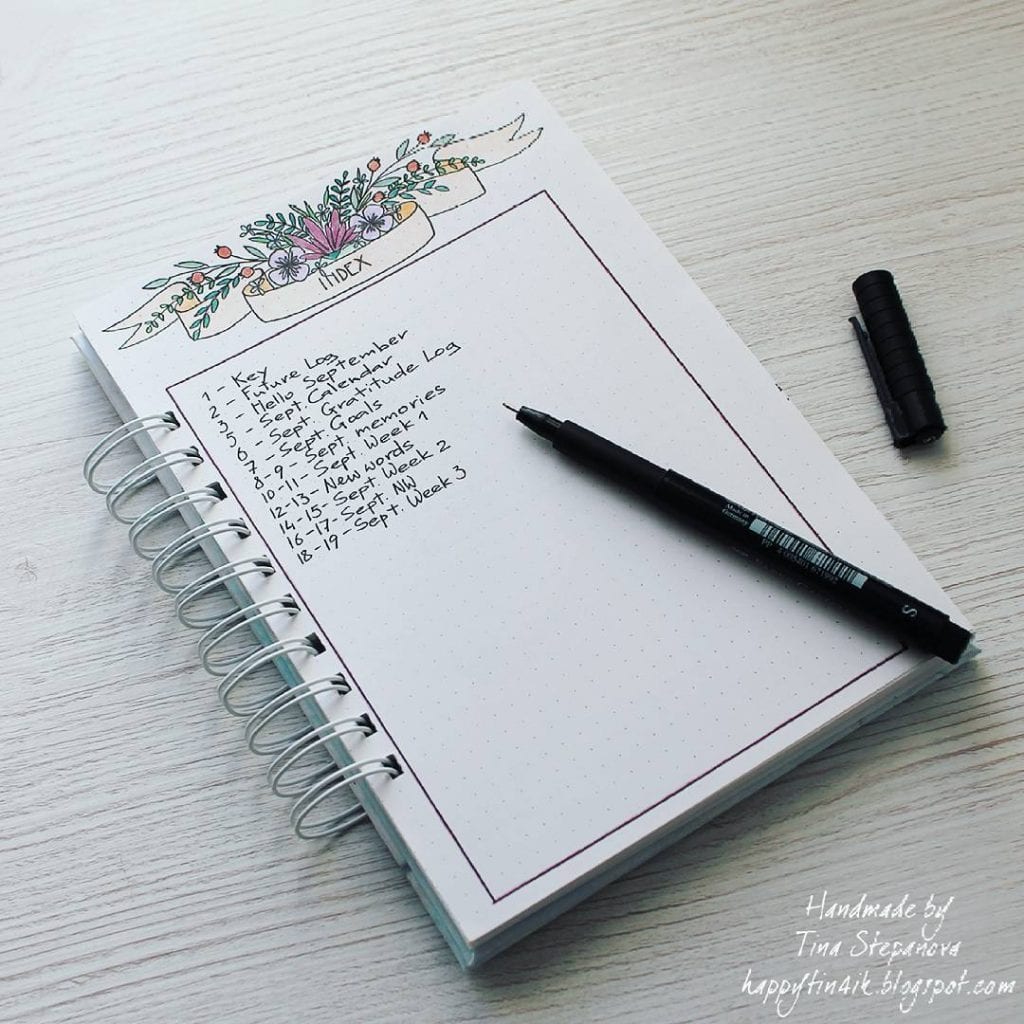 INDEX
1 - Key
2 - Future Log
3 - Hello September
5 - Sept. Calendar
6 - Sept. Gratitude Log
7 - Sept. Goals
8-9 - Sept. memories
10-11 - Sept. Week 1
12-13 - New words
14-15 - Sept. Week 2
16-17 - Sept. NW
18-19 - Sept. Week 3
Made in
Germany
S
Handmade by
Tina Stepanova
happytin4ik.blogspot.com